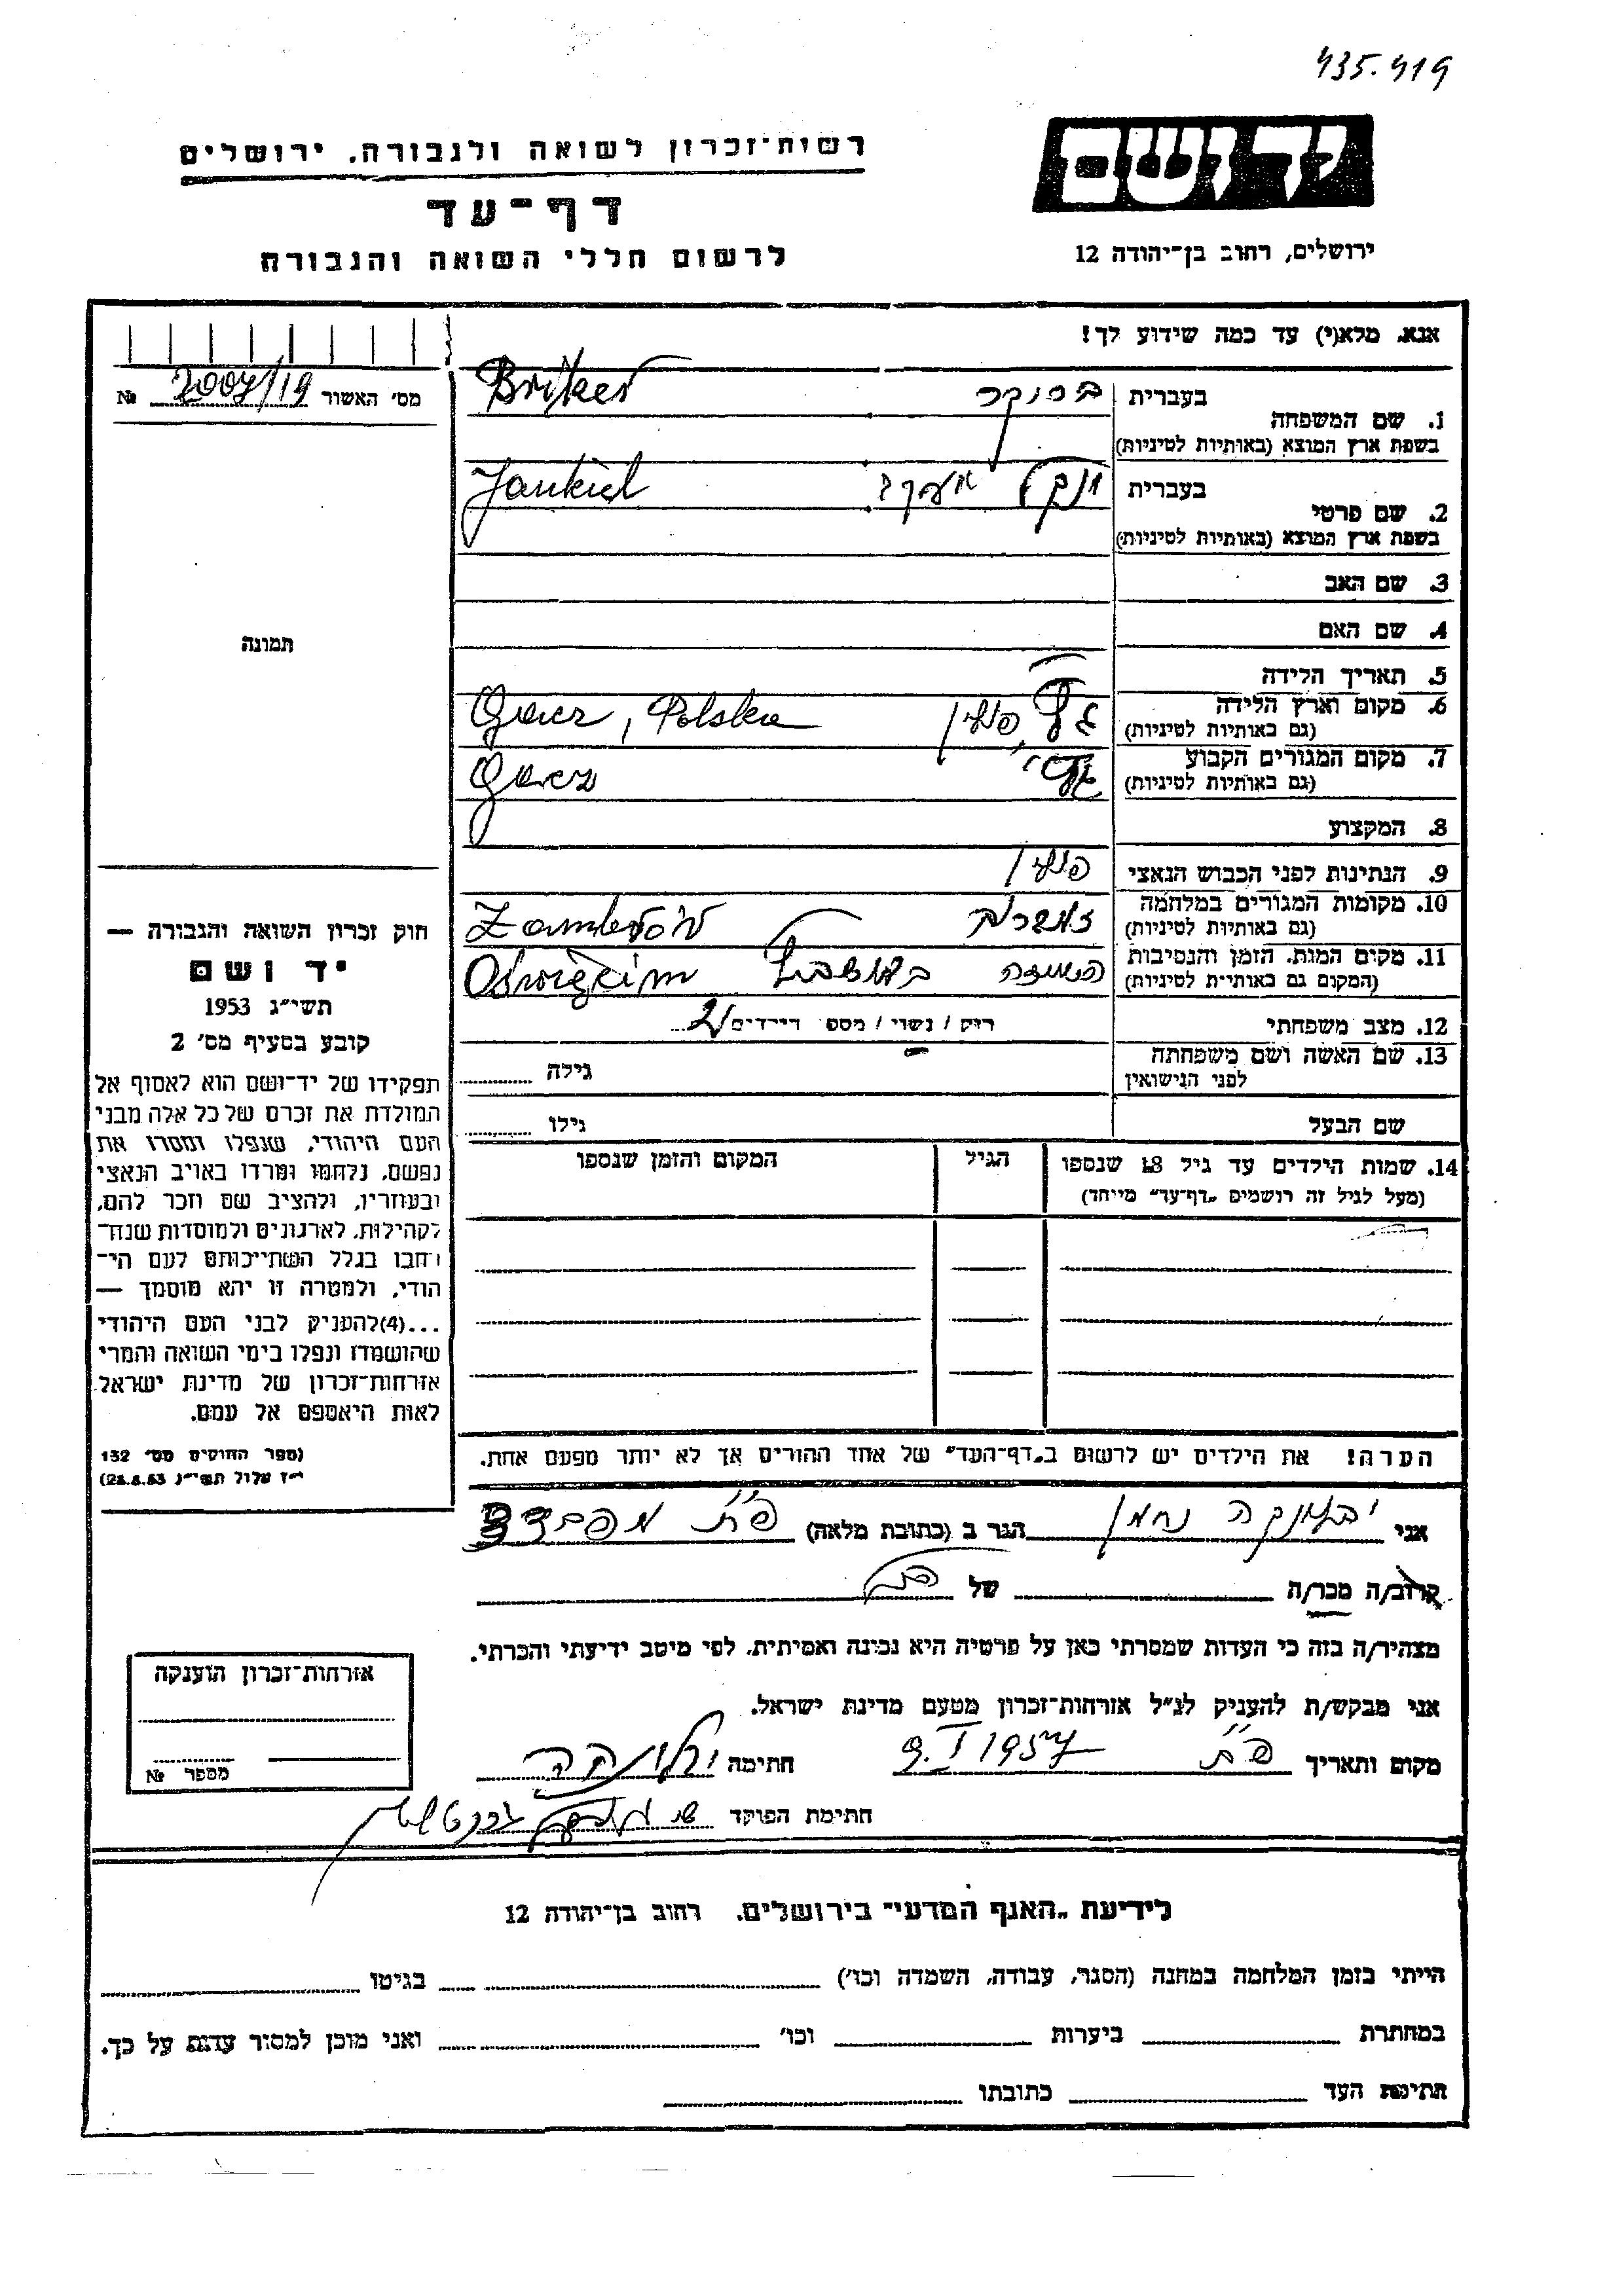 435.419
יד ושם
רשות־זכרון לשואה ולגבורה, ירושלים
דף־עד
לרשום חללי השואה והגבורה
ירושלים, רחוב בן־יהודה 12
אנא, מלא(י) עד כמה שידוע לך!
מס' האשור № 2007/19
1. שם המשפחה
בעברית
Briker
בשפת ארץ המוצא (באותיות לטיניות)
2. שם פרטי
בעברית
Jankiel
בשפת ארץ המוצא (באותיות לטיניות)
3. שם האב
4. שם האם
5. תאריך הלידה
6. מקום וארץ הלידה
(גם באותיות לטיניות)
פולין
, Polska
7. מקום המגורים הקבוע
(גם באותיות לטיניות)
8. המקצוע
9. הנתינות לפני הכבוש הנאצי
פולין
10. מקומות המגורים במלחמה
(גם באותיות לטיניות)
11. מקום המות, הזמן והנסיבות
(המקום גם באותיות לטיניות)
Oświęcim
12. מצב משפחתי
רוק / נשוי / מספר הילדים 2
13. שם האשה ושם משפחתה
לפני הנישואין
גילה
שם הבעל
גילו
14. שמות הילדים עד גיל 18 שנספו
(מעל לגיל זה רושמים "דף־עד" מייחד)
הגיל
המקום והזמן שנספו
תמונה
חוק זכרון השואה והגבורה —
יד ושם
תשי"ג 1953
קובע בסעיף מס' 2
תפקידו של יד־ושם הוא לאסוף אל
המולדת את זכרם של כל אלה מבני
העם היהודי, שנפלו ומסרו את
נפשם, נלחמו ומרדו באויב הנאצי
ובעוזריו, ולהציב שם וזכר להם,
לקהילות, לארגונים ולמוסדות שנח־
רבו בגלל השתייכותם לעם הי־
הודי, ולמטרה זו יהא מוסמך —
...(4) להעניק לבני העם היהודי
שהושמדו ונפלו בימי השואה והמרי
אזרחות־זכרון של מדינת ישראל
לאות היאספם אל עמם.
(ספר החוקים מס' 132
י"ז אלול תשי"ג 28.8.53)
הערה! את הילדים יש לרשום ב"דף־העד" של אחד ההורים אך לא יותר מפעם אחת.
אני נחמן הגר ב (כתובת מלאה) פ"ת
קרוב/ה מכר/ה של
מצהיר/ה בזה כי העדות שמסרתי כאן על פרטיה היא נכונה ואמיתית, לפי מיטב ידיעתי והכרתי.
אני מבקש/ת להעניק לנ"ל אזרחות־זכרון מטעם מדינת ישראל.
מקום ותאריך פ"ת 9.I 1957 חתימה
חתימת הפוקד
אזרחות־זכרון הוענקה
מספר №
לידיעת "האגף המדעי" בירושלים, רחוב בן־יהודה 12
הייתי בזמן המלחמה במחנה (הסגר, עבודה, השמדה וכו') בגיטו
במחתרת ביערות וכו' ואני מוכן למסור עדות על כך.
חתימת העד כתובתו